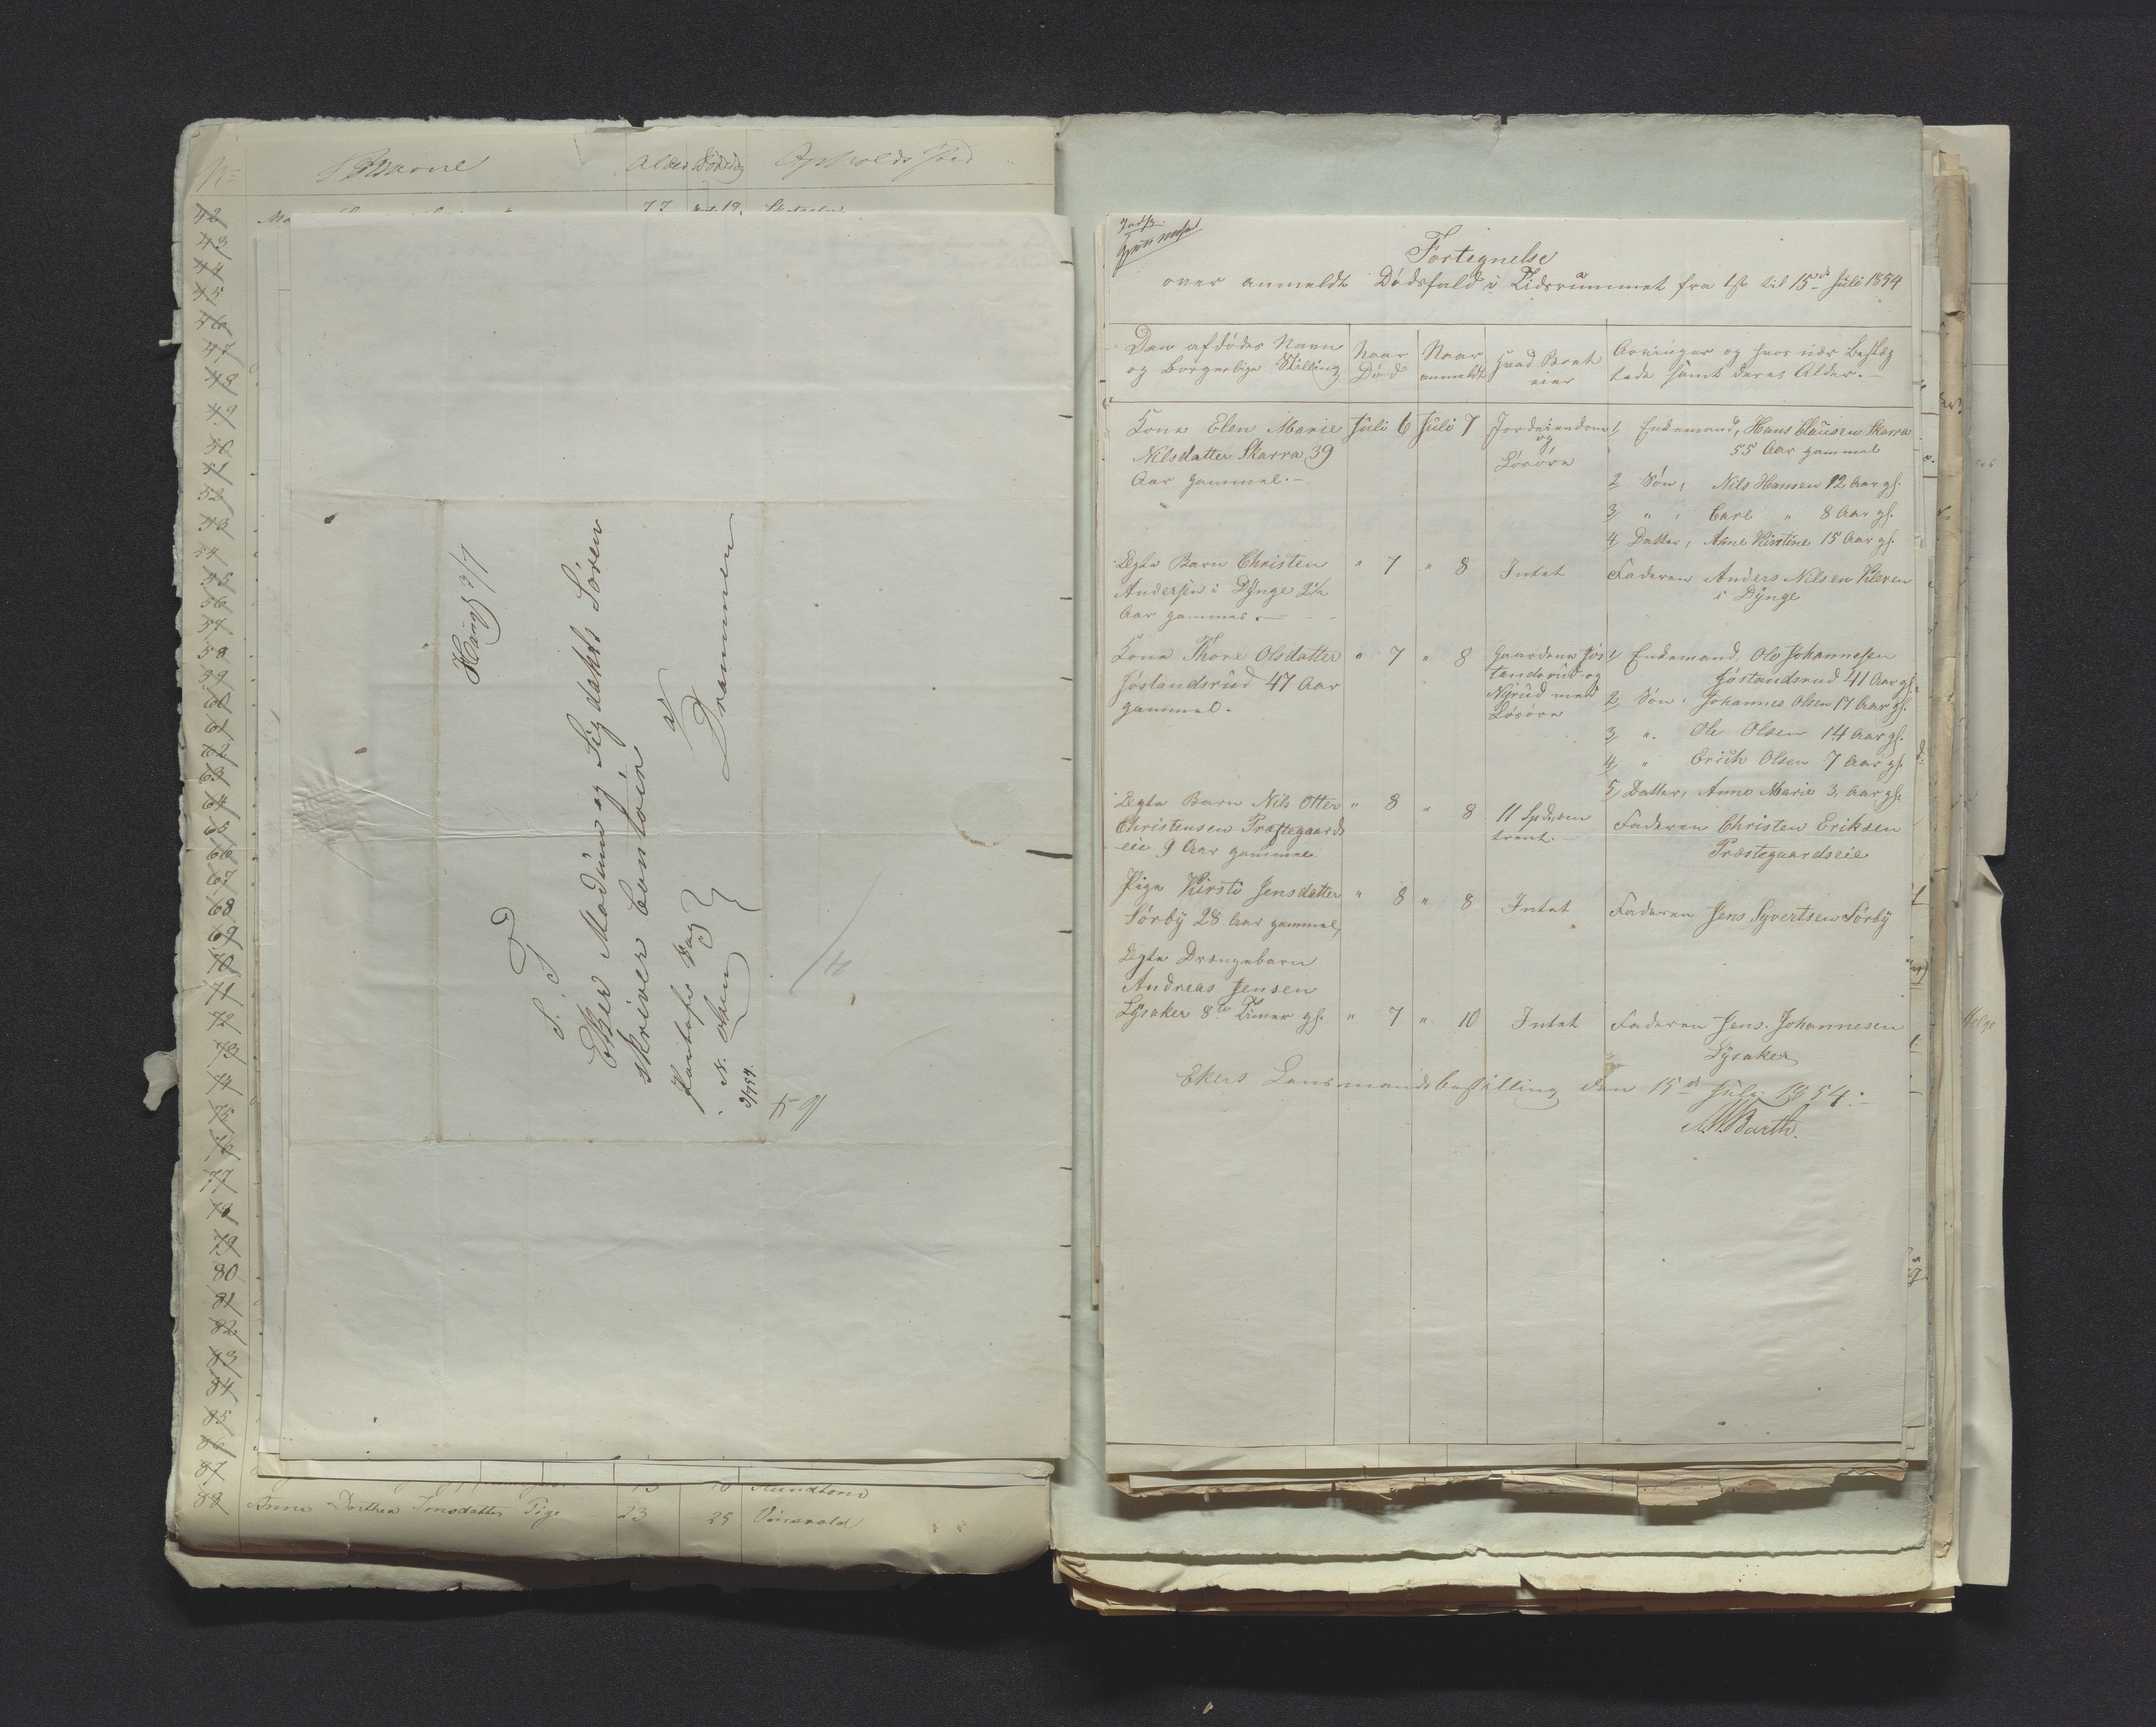 No
Alder Dødsdag Opholdssted
42
77
19
43
44
45
46
47
48
49
50
51
52
53
54
55
56
57
58
59
60
61
62
63
64
65
66
67
68
69
70
71
72
73
74
75
76
77
78
79
80
81
82
83
84
85
86
87
88 Anne Dorthea Jonsdatter Pige 23 25
S. T.
Eker Modum og Sigdahls Soren
skriver Contoir
a
Drammen
Haug 3/7
Fortegnelse
over anmeldte Dødsfald i Tidsrummet fra 1ste til 15de Juli 1854
Den afdødes Navn
og borgerlige Stilling
Naar
Død
Naar
anmeldt
Hvad Boet
eier
Arvinger og hvor nær beslæg
tede samt deres Alder.
Kone Elen Marie Juli 6 Juli 7 Jordeiendom 1, Enkemand, Hans Clausen Skarra
Nilsdatter Skarra 39 og 55 Aar gammel
Aar gammel. Løsøre 2, Søn, Nils Hansen 12 Aar gl.
3, " , Carl " 8 Aar gl.
4, Datter, Anne Kirstine 15 Aar gl.
Ægte Barn Christen " 7 " 8 Intet Faderen Anders Nilsen Kleven
Andersen i Dynge 2½ i Dynge
Aar gammel.
Kone Thore Olsdatter " 7 " 8 Gaardene Jøs 1, Enkemand, Ole Johannessen
Jøslandsrud 47 Aar landsrud og Jøslandsrud 41 Aar gl.
gammel. Nyrud med 2, Søn. Johannes Olsen 17 Aar gl.
Løsøre
3, ". Ole Olsen 14 Aar gl.
4, " Erich Olsen 7 Aar gl.
5, Datter, Anne Marie 3, Aar gl.
Ægte Barn Nils Otter " 8 " 8 11 Spd. om Faderen Christen Eriksen
Christensen Præstegaards trent. Præstegaardseie
eie 9 Aar gammel.
Pige Kirsti Jensdatter " 8 " 8 Intet Faderen Jens Syvertsen Sørby
Sørby 28 Aar gammel,
Ægte Drengebarn
Andreas Jensen
Lysaker 8te Timer gl. " 7 " 10 Intet Faderen Jens. Johannesen
Lysaker
Ekers Lensmandsbestilling den 15de Juli 1854.
Barth.
Helge